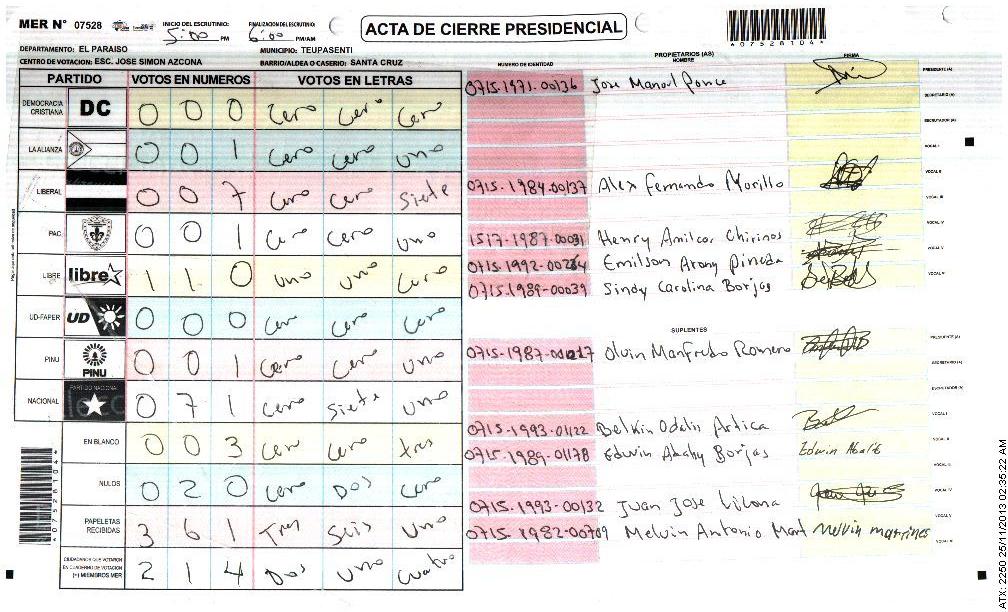 MER N° 07528
INICIO DEL ESCRUTINIO: 5:00 PM
FINALIZACION DEL ESCRUTINIO: 6:00 PM/AM
ACTA DE CIERRE PRESIDENCIAL
*07528104*
DEPARTAMENTO: EL PARAISO
MUNICIPIO: TEUPASENTI
CENTRO DE VOTACION: ESC. JOSE SIMON AZCONA
BARRIO/ALDEA O CASERIO: SANTA CRUZ
PARTIDO VOTOS EN NUMEROS VOTOS EN LETRAS
DEMOCRACIA CRISTIANA DC 0 0 0 Cero Cero Cero
LA ALIANZA 0 0 1 Cero Cero uno
LIBERAL 0 0 7 Cero Cero Siete
PAC 0 0 1 Cero Cero uno
LIBRE libre 1 1 0 uno uno Cero
UD-FAPER UD 0 0 0 Cero Cero Cero
PINU PINU 0 0 1 Cero Cero Uno
NACIONAL PARTIDO NACIONAL 0 7 1 Cero Siete uno
EN BLANCO 0 0 3 Cero Cero tres
NULOS 0 2 0 Cero Dos Cero
PAPELETAS RECIBIDAS 3 6 1 Tres Seis Uno
CIUDADANOS QUE VOTARON EN CUADERNO DE VOTACION (+) MIEMBROS MER 2 1 4 Dos Uno Cuatro
*07528104*
NUMERO DE IDENTIDAD PROPIETARIOS (AS) NOMBRE FIRMA
0715-1971-00136 Jose Manuel Ponce PRESIDENTE (A)
SECRETARIO (A)
ESCRUTADOR (A)
VOCAL I
0715-1984-00137 Alex Fernando Murillo VOCAL II
VOCAL III
1517-1987-00031 Henry Amilcar Chirinos VOCAL IV
0715-1992-00264 Emilson Arony Pineda VOCAL V
0715-1989-00039 Sindy Carolina Borjas VOCAL VI
SUPLENTES
0715-1987-00217 Olvin Manfredo Romero PRESIDENTE (A)
SECRETARIO (A)
ESCRUTADOR (A)
0715-1993-01122 Belkin Odalis Artica VOCAL I
0715-1989-01178 Edwin Borjas Edwin VOCAL II
VOCAL III
0715-1993-00132 Juan Jose VOCAL IV
VOCAL V
0715-1982-00709 Melvin Antonio Mart Melvin martines VOCAL VI
ATX: 2250 25/11/2013 02:35:22 AM